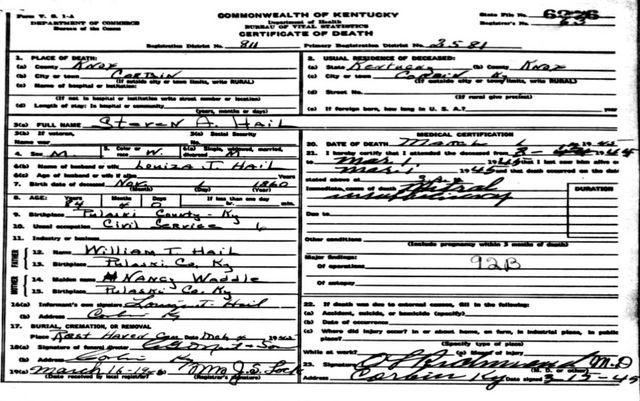 Form V. S. 1-A
DEPARTMENT OF COMMERCE
Bureau of the Census
COMMONWEALTH OF KENTUCKY
Department of Health
BUREAU OF VITAL STATISTICS
CERTIFICATE OF DEATH
State File No. 6926
Registrar's No. 63
Registration District No. 811
Primary Registration District No. 3581
1. PLACE OF DEATH:
(a) County Knox
(b) City or town Corbin
(If outside city or town limits, write RURAL)
(c) Name of hospital or institution:
(If not in hospital or institution, write street number or location)
(d) Length of stay: In hospital or community
(years, months or days)
2. USUAL RESIDENCE OF DECEASED:
(a) State Kentucky (b) County Knox
(c) City or town Corbin Ky
(If outside city or town limits, write RURAL)
(d) Street No.
(If rural give precinct)
(e) If foreign born, how long in U. S. A.?
3(a) FULL NAME Steven A. Hail
3(b) If veteran, Name war
3(c) Social Security
4. Sex M. 5. Color or race W. 6(a) Single, widowed, married, divorced M
6(b) Name of husband or wife Louiza J. Hail
6(c) Age of husband or wife if alive
7. Birth date of deceased Nov 1860
(Month) (Day) (Year)
8. AGE: Years 84 Months 4 Days 0 If less than one day hr. min.
9. Birthplace Pulaski County - Ky
10. Usual occupation Civil Service
11. Industry or business
FATHER
12. Name William T. Hail
13. Birthplace Pulaski Co. Ky
MOTHER
14. Maiden name Nancy Waddle
15. Birthplace Pulaski Co. Ky
16(a) Informant's own signature Hail
(b) Address Corbin Ky
17. BURIAL, CREMATION, OR REMOVAL
Place Rest Haven Cem Date
18(a) Signature of funeral director
(b) Address Corbin Ky
19(a) March 16-1945 (b) Mrs J. S. Lock
(Date received by local registrar) (Registrar's signature)
MEDICAL CERTIFICATION
20. DATE OF DEATH March 1945
21. I hereby certify that I attended the deceased from
Mar 1, 1945 that I last saw him alive on
Mar 1 1945 and that death occurred on the date
stated above at
Immediate cause of death Mitral
insufficiency
DURATION
Due to
Other conditions
(Include pregnancy within 3 months of death)
Major findings:
Of operations 92B
Of autopsy
22. If death was due to external causes, fill in the following:
(a) Accident, suicide, or homicide (specify)
(b) Date of occurrence
(c) Where did injury occur? in or about home, on farm, in industrial place, in public
place?
(Specify type of place)
While at work? (e) Means of injury
23. Signature Richmond M.D
(M. D. or other)
Address Corbin Ky Date signed 3-15-45